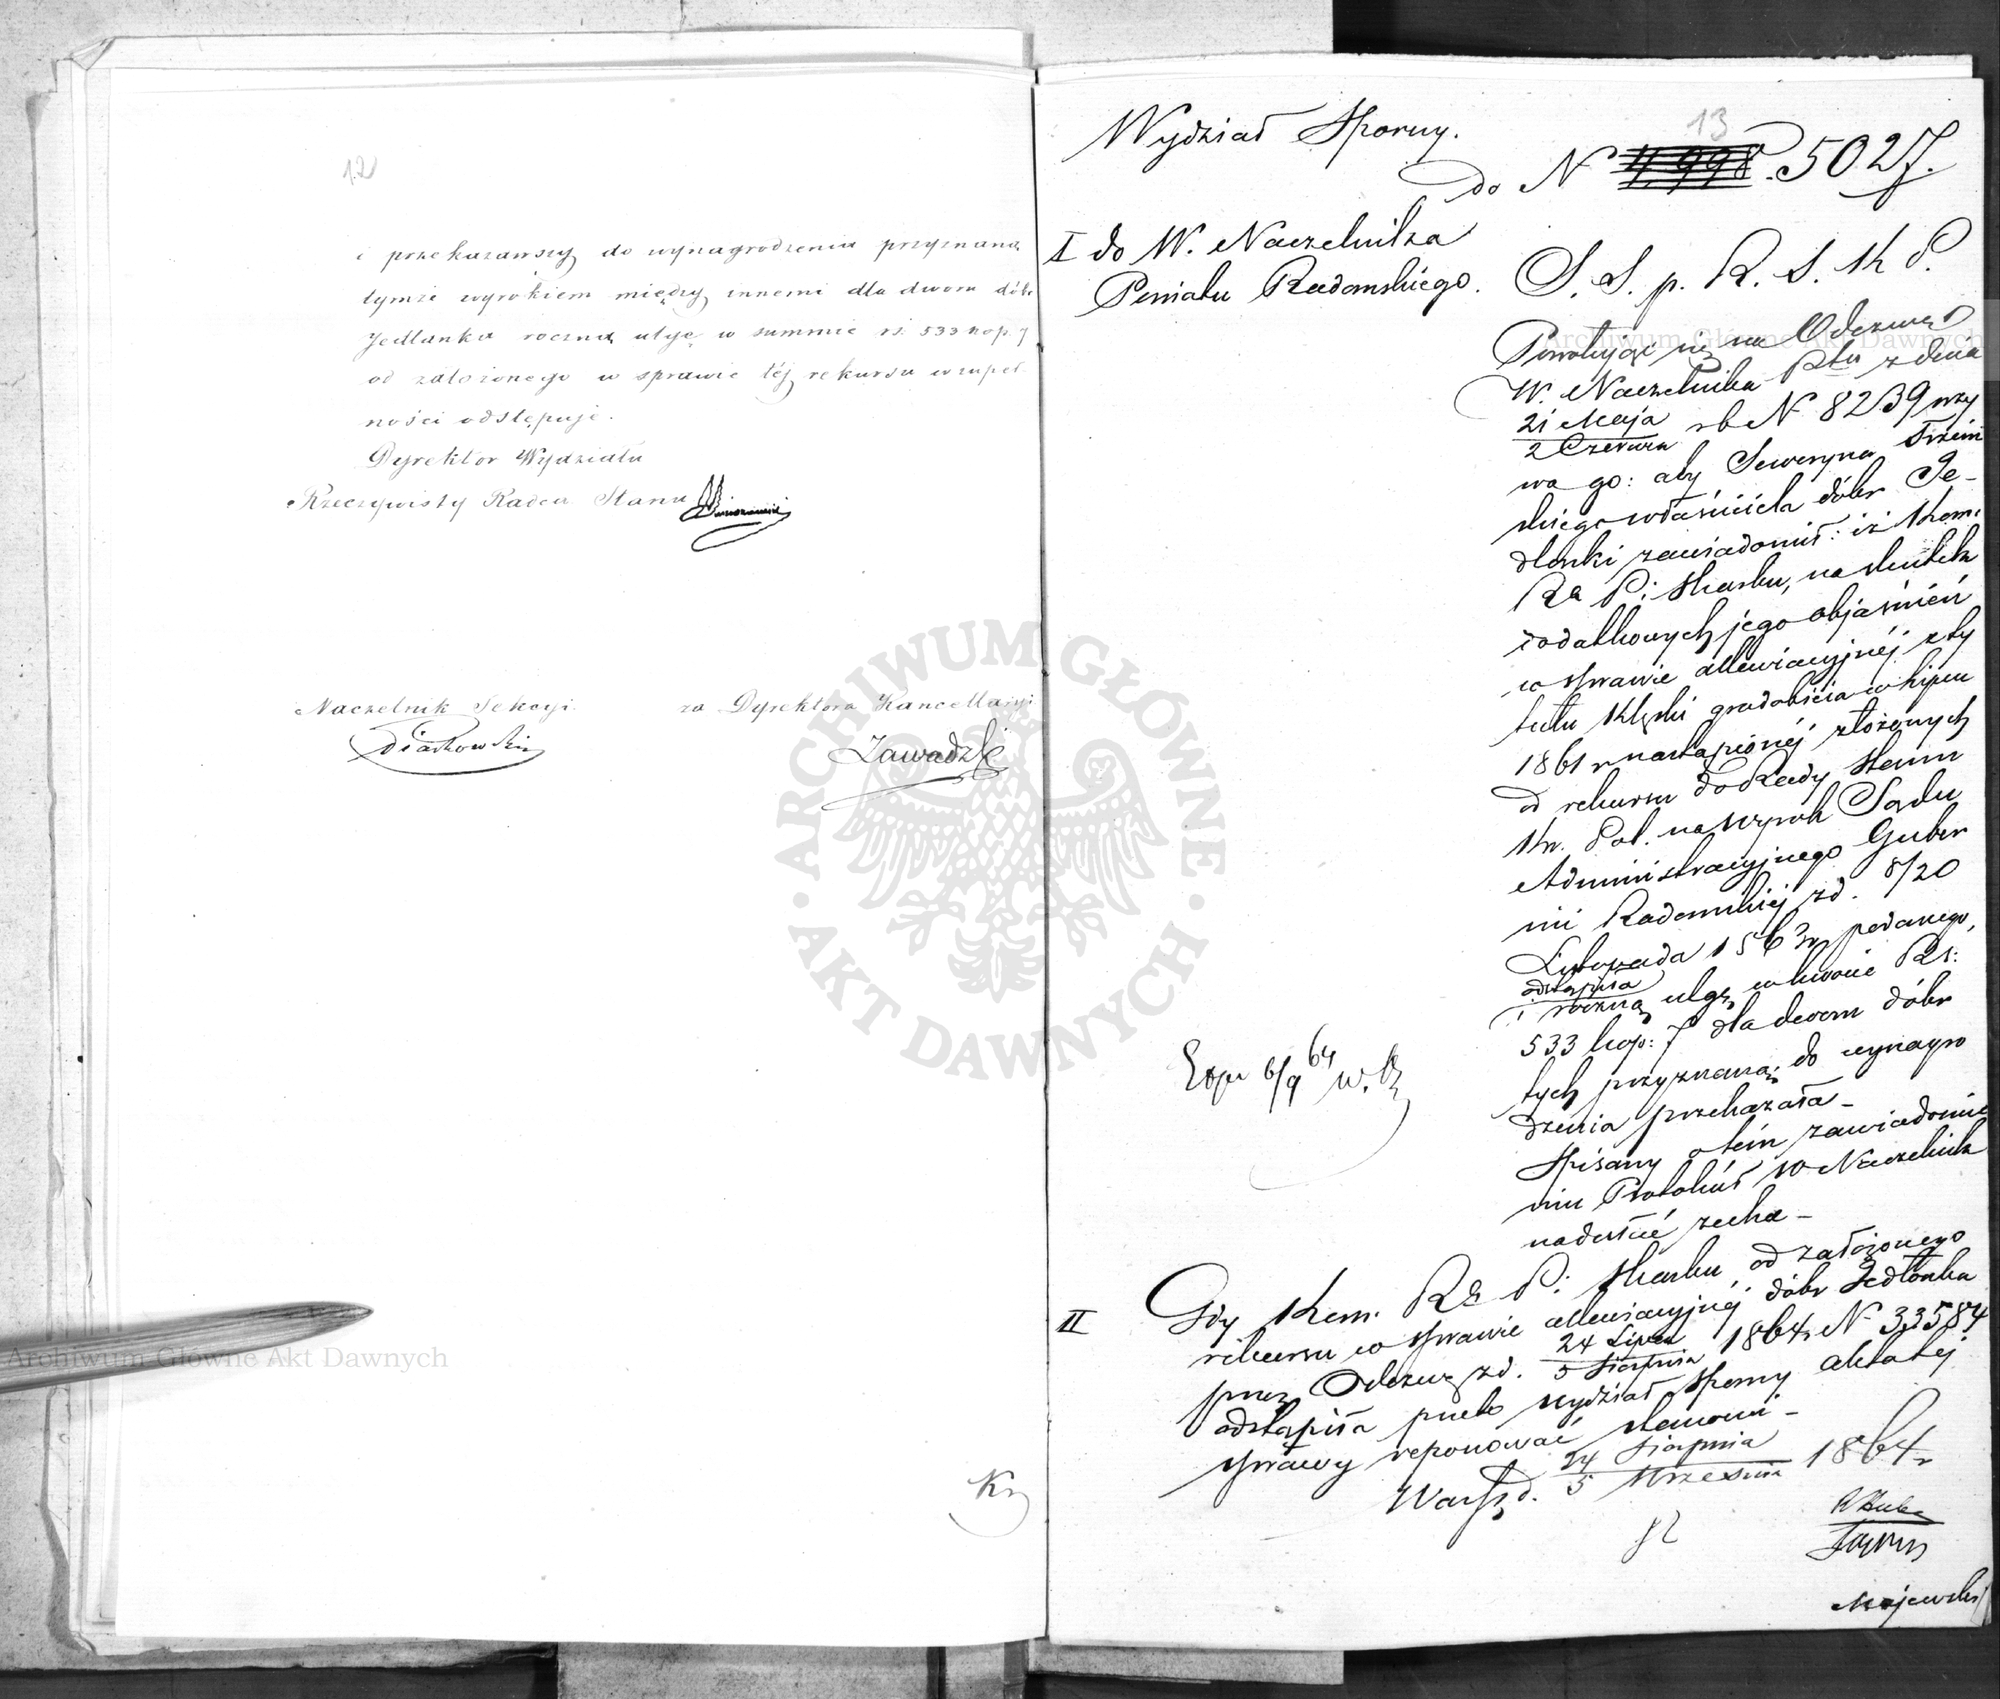 12
i przekazawszy do wynagrodzenia przyznaną
tymże wyrokiem między innemi dla dworu dóbr
Jedlanka roczną ulgę w summie rs. 533 kop. 7
od założonego w sprawie téj rekursu w zupeł
ności odstępuje.
Dyrektor Wydziału
Rzeczywisty Radca Stanu
Naczelnik Sekcyi
Piaskowski
za Dyrektora Kancellaryi
Zawadzki
13
Wydział Sporny.
do N 4,998. 5027.
I do W. Naczelnika
Powiatu Radomskiego.
S. S. p. R. S. K P.
Powołując się na Odezwę
W. Naczelnika Ptu z dnia
21 Maja
2 Czerwca
rb N 8239 wzy
wa go: aby Seweryna Trzciń
skiego właściciela dóbr Je-
dlanki zawiadomił: iż Kom:
Rz P: Skarbu, na skutek
dodatkowych jego objaśnień
w sprawie allewiacyjnéj z ty
tułu klęski gradobicia w lipcu
1861 r nastąpionéj złożonych
od rekursu do Rady Stanu
Kr. Pol. na wyrok Sądu
Administracyjnego Guber
nii Radomskiej z d. 8/20
Listopada 1863 r podanego,
odstąpiła
i roczną ulgę w kwocie Rs:
533 kop: 7 dla dworu dóbr
tych przyznaną do wynagro
dzenia przekazała -
Spisany o tém zawiadomie
niu Protokół W Naczelnik
nadesłać zechce -
Exp 6/9 64
II
Gdy Kom. Rz P: Skarbu od założonego
rekursu w sprawie allewiacyjnéj dóbr Jedlanka
przez Odezwę z d. 24 Lipca
5 Sierpnia
1864 r N 33584
odstąpiła przeto Wydział Sporny akta téj
sprawy reponować stanowi -
Warsz d. 24 Sierpnia
5 Września
1864 r
Majewski
Archiwum Główne Akt Dawnych
Archiwum Główne Akt Dawnych
ARCHIWUM GŁÓWNE · AKT DAWNYCH ·